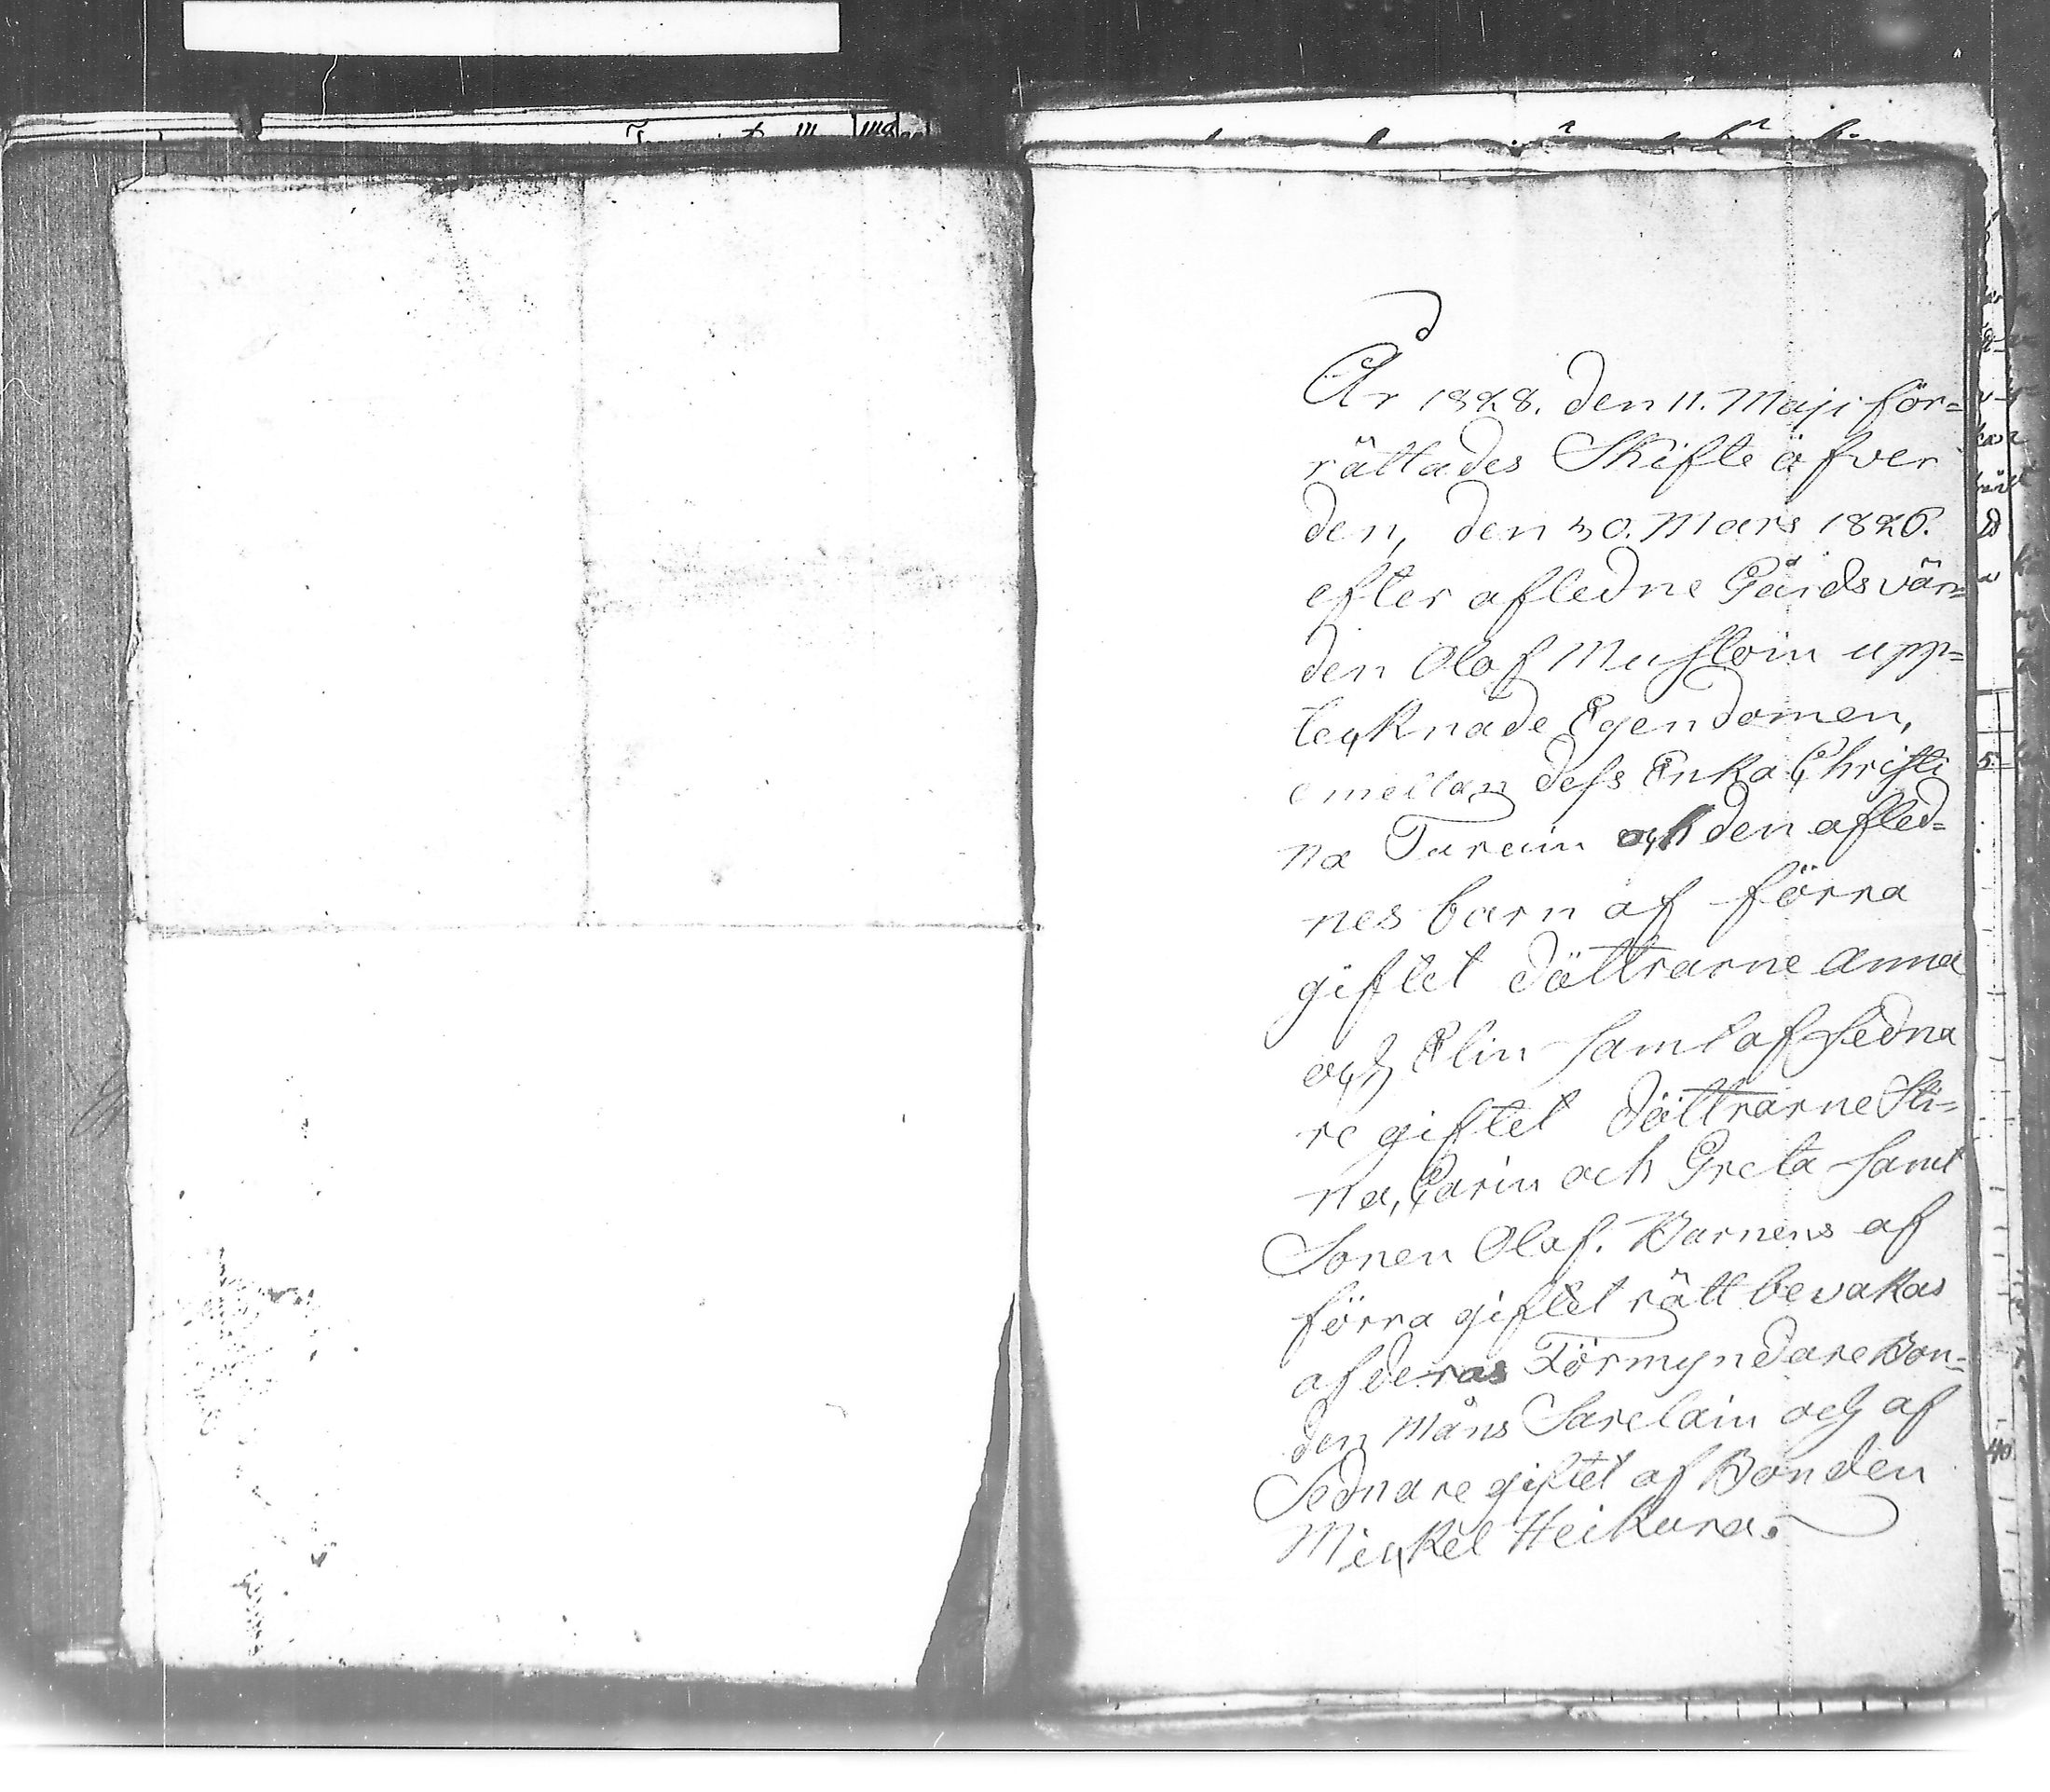 År 1828. den 11. Maji för=
rättades Skifte öfver
den, den 30. Mars 1826.
efter afledne Gårdsvär=
den Olof Mustoin upp=
tecknade Egendomen,
emellan dess Enka Christi
na Turuin och den afled=
nes barn af förra
giftet döttrarne Anna
och Elin samt af sedna
re giftet döttrarne Sti=
na, Carin och Greta samt
Sonen Olof. Barnens af
förra giftet rätt bevakas
af deras Förmyndare Bon=
den Måns Sarelain och af
Sednare giftet af Bonden
Mickel Heikura.